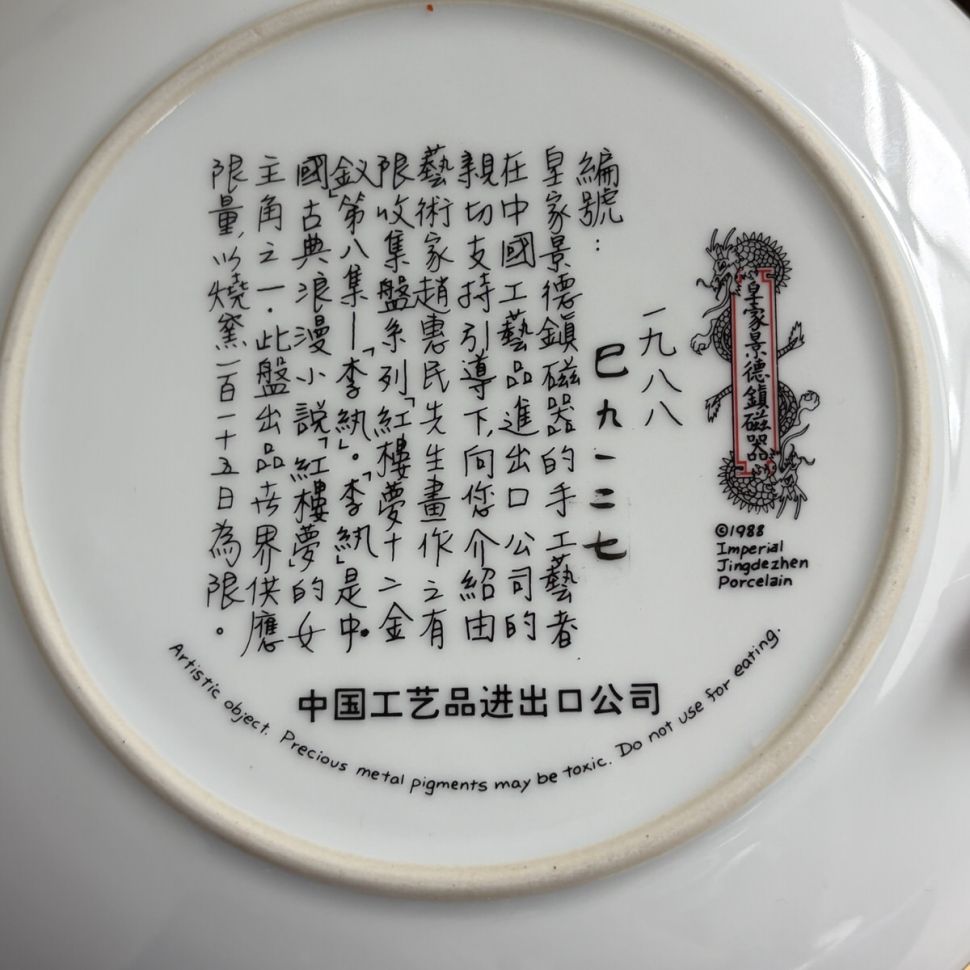 皇家景德鎮磁器
©1988
Imperial
Jingdezhen
Porcelain
一九八八
編號：
巳九一二七
皇家景德鎮磁器的手工藝者
在中國工藝品進出口公司的
親切支持引導下,向您介紹由
藝術家趙惠民先生畫作之有
限收集盤系列「紅樓夢十二金
釵」第八集—「李紈」。「李紈」是中
國古典浪漫小說「紅樓夢」的女
主角之一.此盤出品世界供應
限量,以燒窯一百一十五日為限。
中国工艺品进出口公司
Artistic object. Precious metal pigments may be toxic. Do not use for eating.